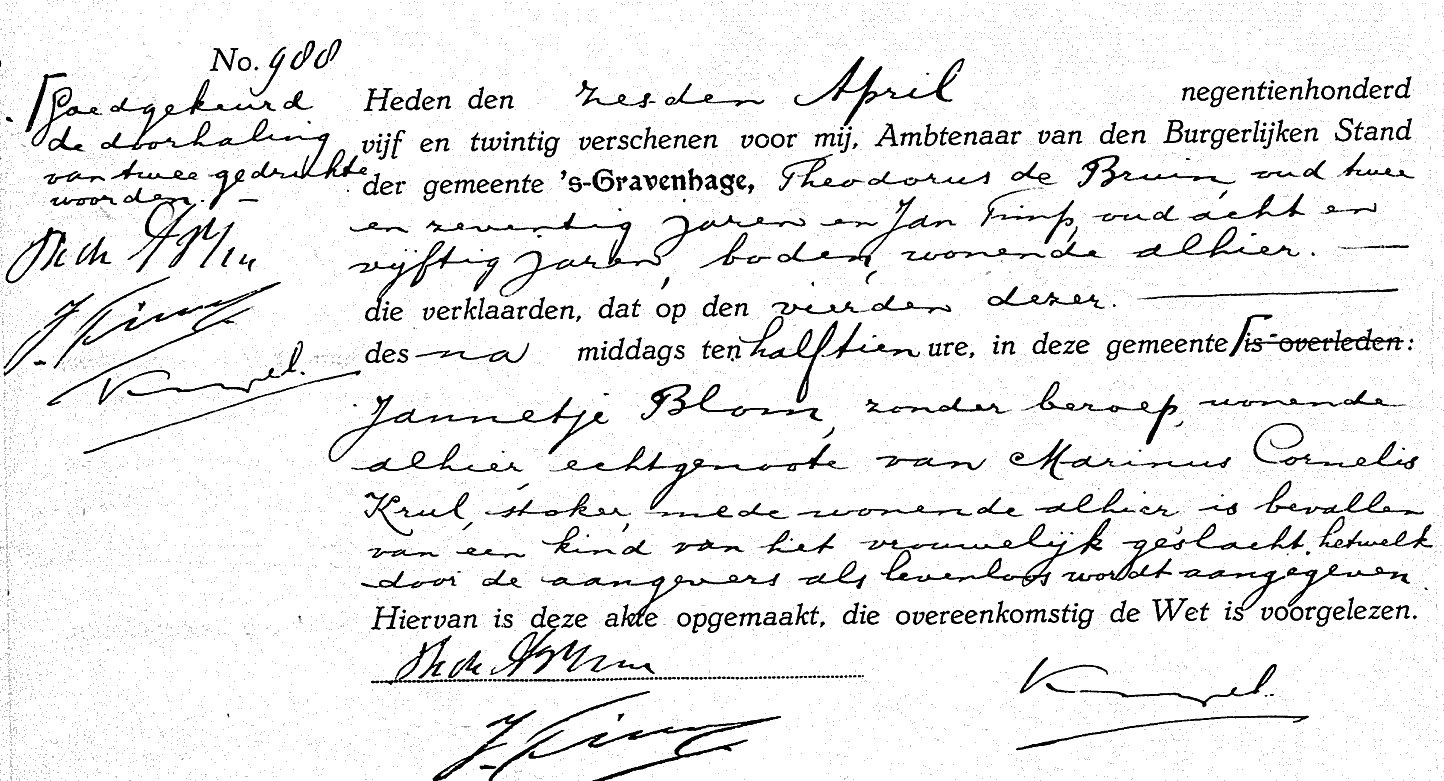 No. 988
Goedgekeurd
de doorhaling
van twee gedrukte
woorden.
Heden den zesden April negentienhonderd
vijf en twintig verschenen voor mij, Ambtenaar van den Burgerlijken Stand
der gemeente 's-Gravenhage, Theodorus de Bruin, oud twee
en zeventig jaren en Jan Timp, oud acht en
vijftig jaren, boden, wonende alhier.
die verklaarden, dat op den vierden dezer.
des na middags ten half tien ure, in deze gemeente is overleden:
Jannetje Blom, zonder beroep, wonende
alhier, echtgenoote van Marinus Cornelis
Krul, stoker, mede wonende alhier, is bevallen
van een kind van het vrouwelijk geslacht, hetwelk
door de aangevers als levenloos wordt aangegeven.
Hiervan is deze akte opgemaakt, die overeenkomstig de Wet is voorgelezen.